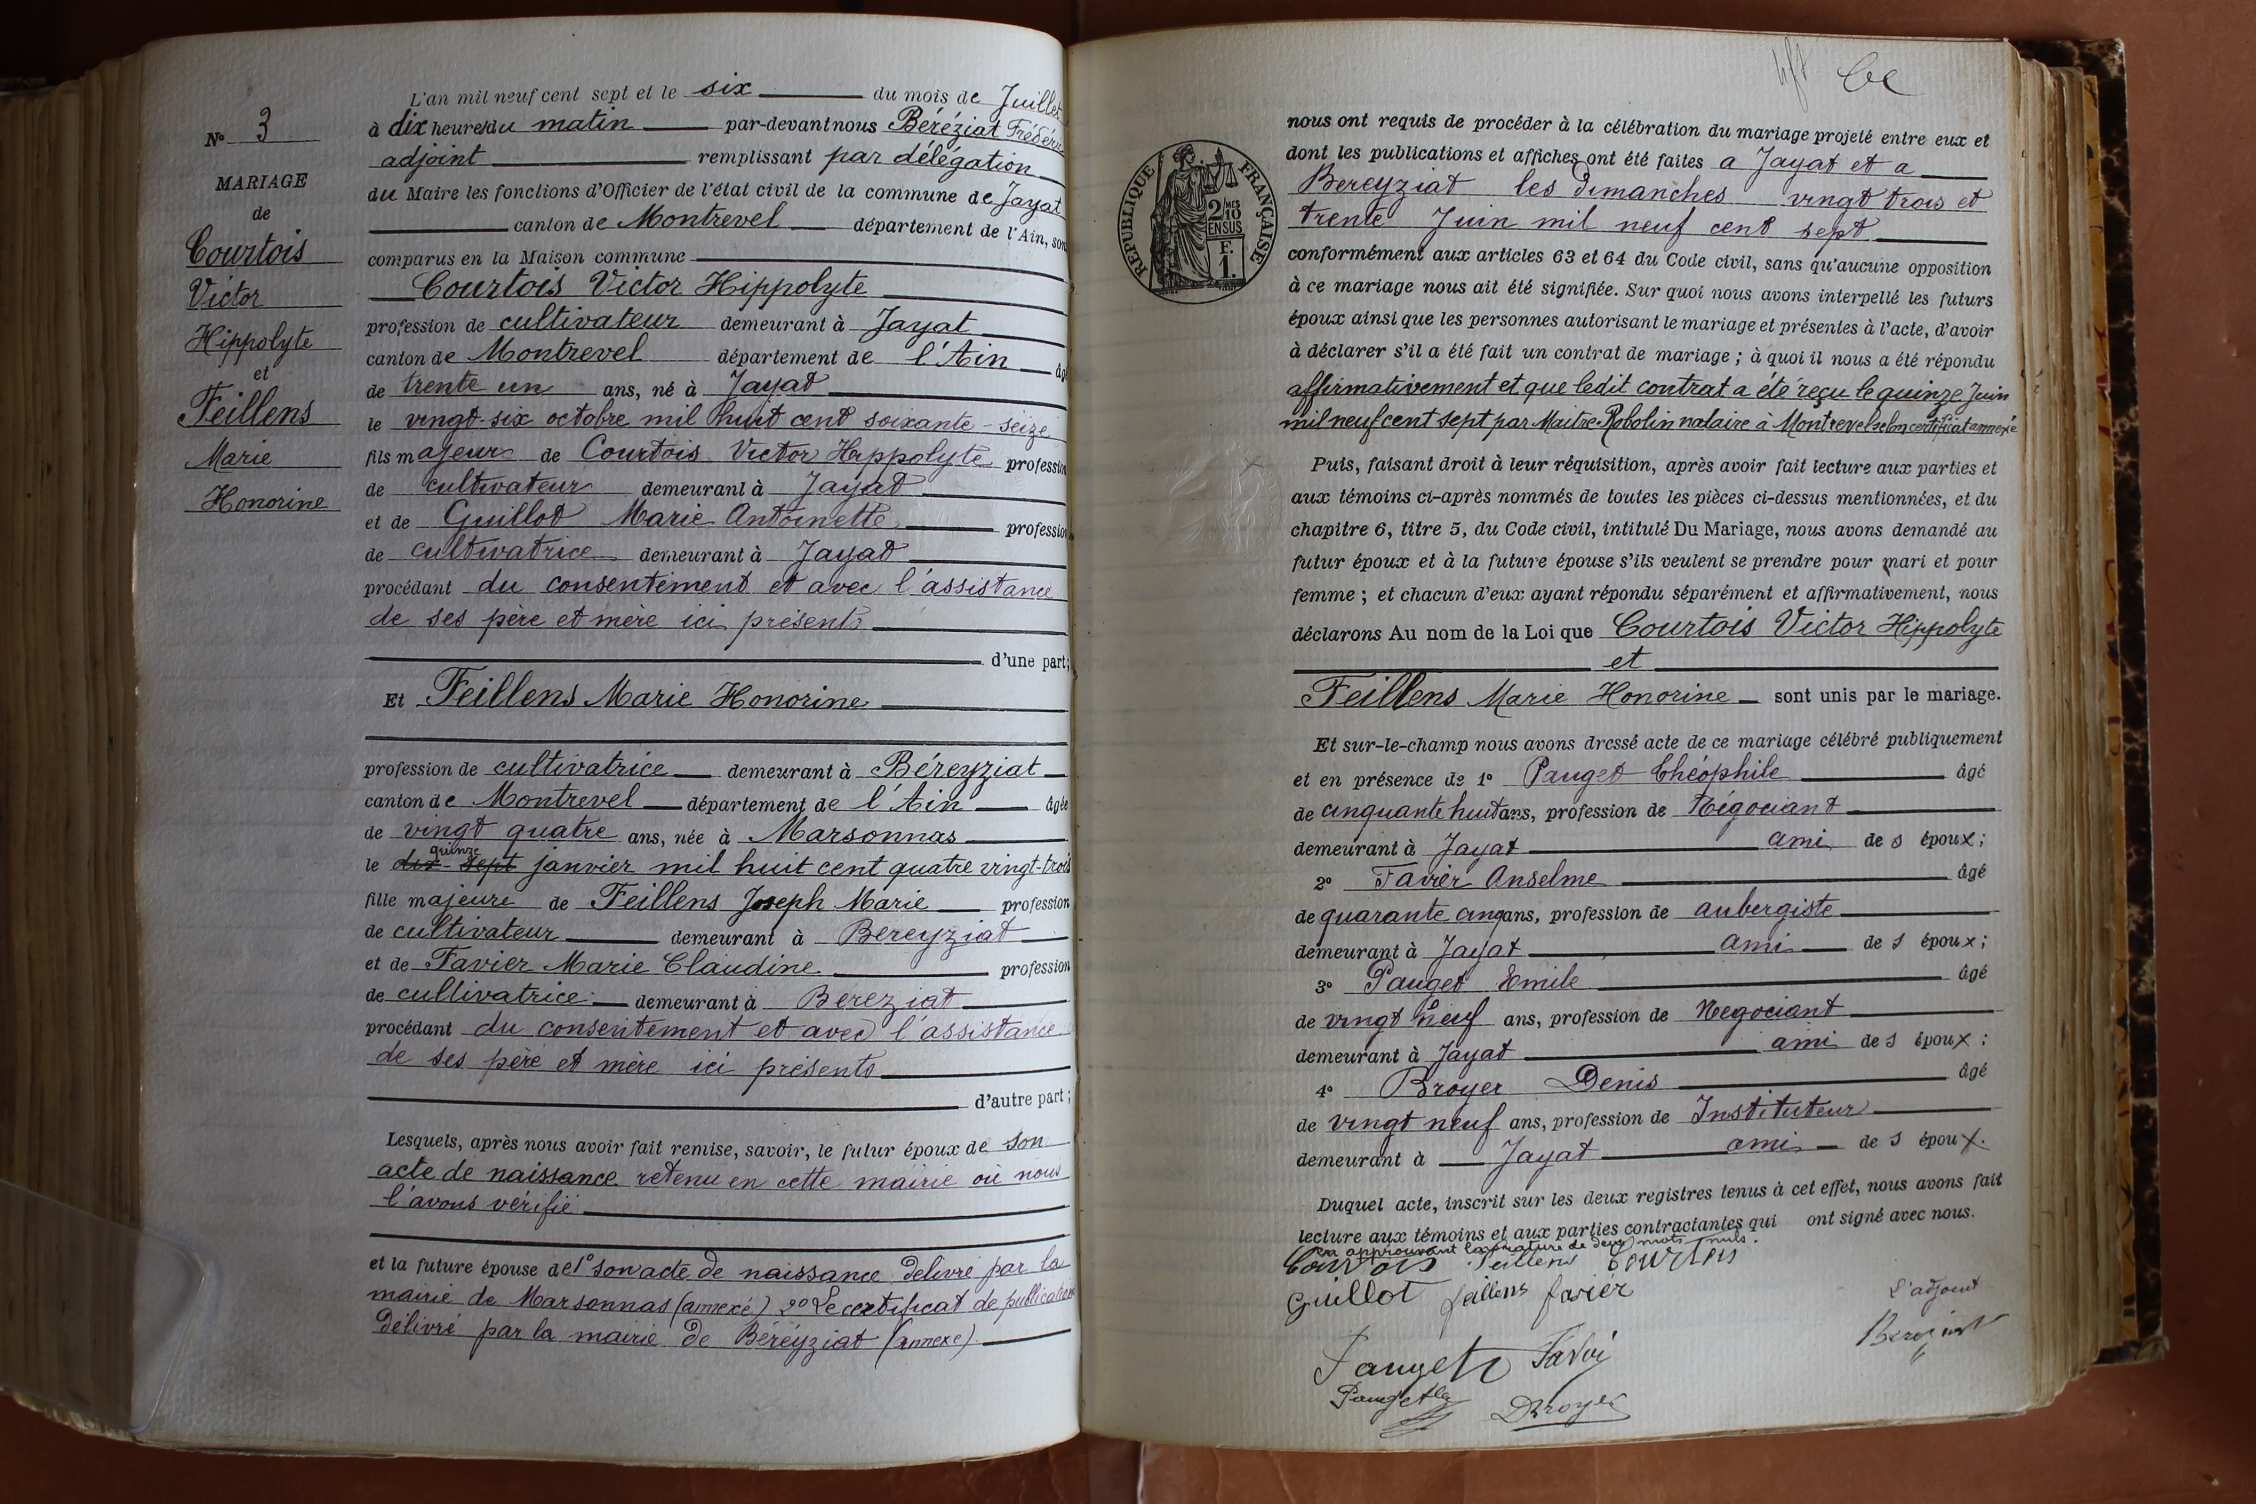 L'an mil neuf cent sept et le six du mois de Juillet
à dix heures du matin par-devant nous Béréziat Frédéric
adjoint remplissant par délégation
du Maire les fonctions d'Officier de l'état civil de la commune de Jayat
canton de Montrevel département de l'Ain, sont
comparus en la Maison commune
Courtois Victor Hippolyte
profession de cultivateur demeurant à Jayat
canton de Montrevel département de l'Ain âgé
de trente un ans, né à Jayat
le vingt-six octobre mil huit cent soixante-seize
fils majeur de Courtois Victor Hippolyte profession
de cultivateur demeurant à Jayat
et de Guillot Marie Antoinette profession
de cultivatrice demeurant à Jayat
procédant du consentement et avec l'assistance
de ses père et mère ici présents
d'une part;
Et Feillens Marie Honorine
profession de cultivatrice demeurant à Béreyziat
canton de Montrevel département de l'Ain âgée
de vingt quatre ans, née à Marsonnas
quinze
le dix-sept janvier mil huit cent quatre vingt-trois
fille majeure de Feillens Joseph Marie profession
de cultivateur demeurant à Bereyziat
et de Favier Marie Claudine profession
de cultivatrice demeurant à Bereziat
procédant du consentement et avec l'assistance
de ses père et mère ici présents
d'autre part;
Lesquels, après nous avoir fait remise, savoir, le futur époux de son
acte de naissance retenu en cette mairie où nous
l'avons vérifié
et la future épouse de 1° son acte de naissance delivré par la
mairie de Marsonnas (annexé) 2° Le certificat de publication
délivré par la mairie de Béréyziat (annexe)
N° 3
MARIAGE
de
Courtois
Victor
Hippolyte
et
Feillens
Marie
Honorine
RÉPUBLIQUE FRANÇAISE
2/10
MES
EN SUS
F.
1.
nous ont requis de procéder à la célébration du mariage projeté entre eux et
dont les publications et affiches ont été faites a Jayat et a
Bereyziat les dimanches vingt trois et
trente Juin mil neuf cent sept
conformément aux articles 63 et 64 du Code civil, sans qu'aucune opposition
à ce mariage nous ait été signifiée. Sur quoi nous avons interpellé les futurs
époux ainsi que les personnes autorisant le mariage et présentes à l'acte, d'avoir
à déclarer s'il a été fait un contrat de mariage; à quoi il nous a été répondu
affirmativement et que ledit contrat a été reçu le quinze Juin
mil neuf cent sept par Maitre Robolin notaire à Montrevel selon certificat annexé
Puis, faisant droit à leur réquisition, après avoir fait lecture aux parties et
aux témoins ci-après nommés de toutes les pièces ci-dessus mentionnées, et du
chapitre 6, titre 5, du Code civil, intitulé Du Mariage, nous avons demandé au
futur époux et à la future épouse s'ils veulent se prendre pour mari et pour
femme; et chacun d'eux ayant répondu séparément et affirmativement, nous
déclarons Au nom de la Loi que Courtois Victor Hippolyte
et
Feillens Marie Honorine sont unis par le mariage.
Et sur-le-champ nous avons dressé acte de ce mariage célébré publiquement
et en présence de 1° Pauget Chéophile âgé
de cinquante huit ans, profession de Négociant
demeurant à Jayat ami de s époux;
2° Favier Anselme âgé
de quarante cinq ans, profession de aubergiste
demeurant à Jayat ami de s époux;
3° Pauget Emile âgé
de vingt neuf ans, profession de Negociant
demeurant à Jayat ami de s époux;
4° Broyer Denis âgé
de vingt neuf ans, profession de Instituteur
demeurant à Jayat ami de s époux.
Duquel acte, inscrit sur les deux registres tenus à cet effet, nous avons fait
lecture aux témoins et aux parties contractantes qui ont signé avec nous.
en approuvant la rature de deux mots nuls.
Courtois Feillens Courtois
Guillot feillens favier
L'adjoint
Bereziat
Pauget Favier
Pauget
DBroyer